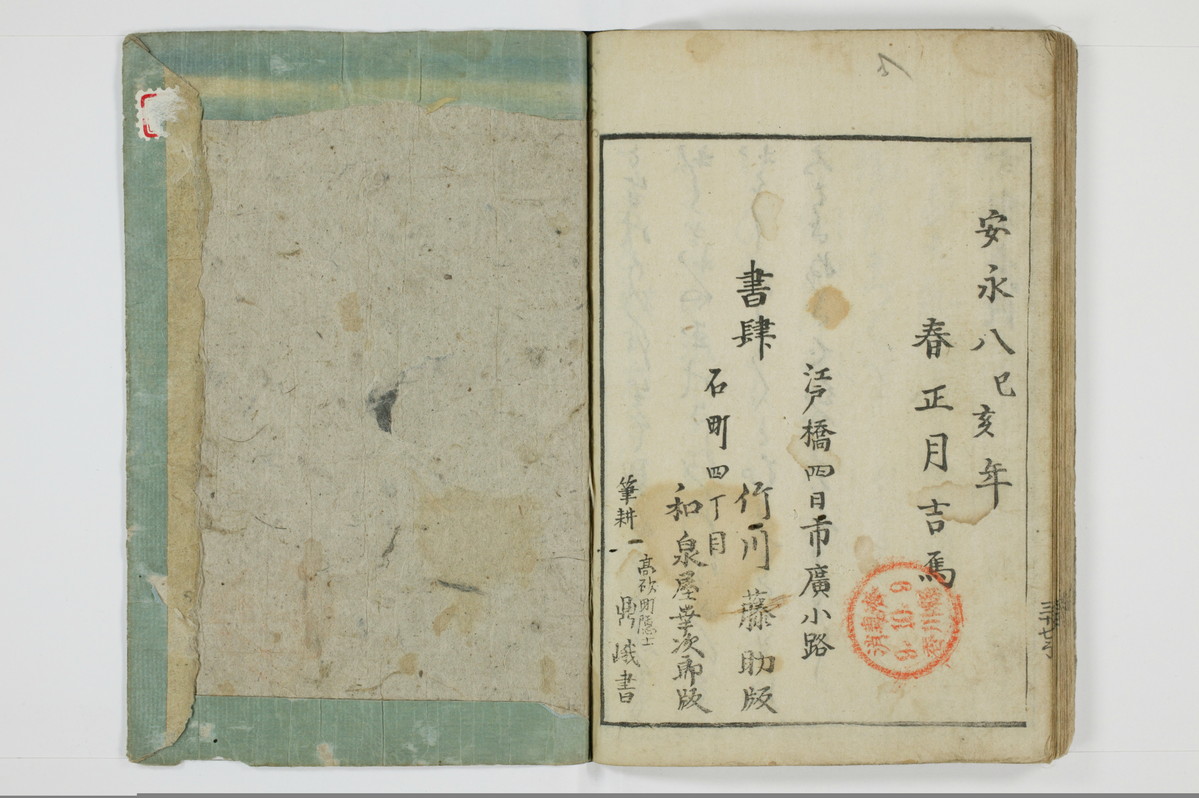 安永八己亥年
春正月吉焉
江戸橋四日市廣小路
書肆
竹川藤助版
石町四丁目
和泉屋幸次郎版
筆耕
高砂町隠士
鼎峨書